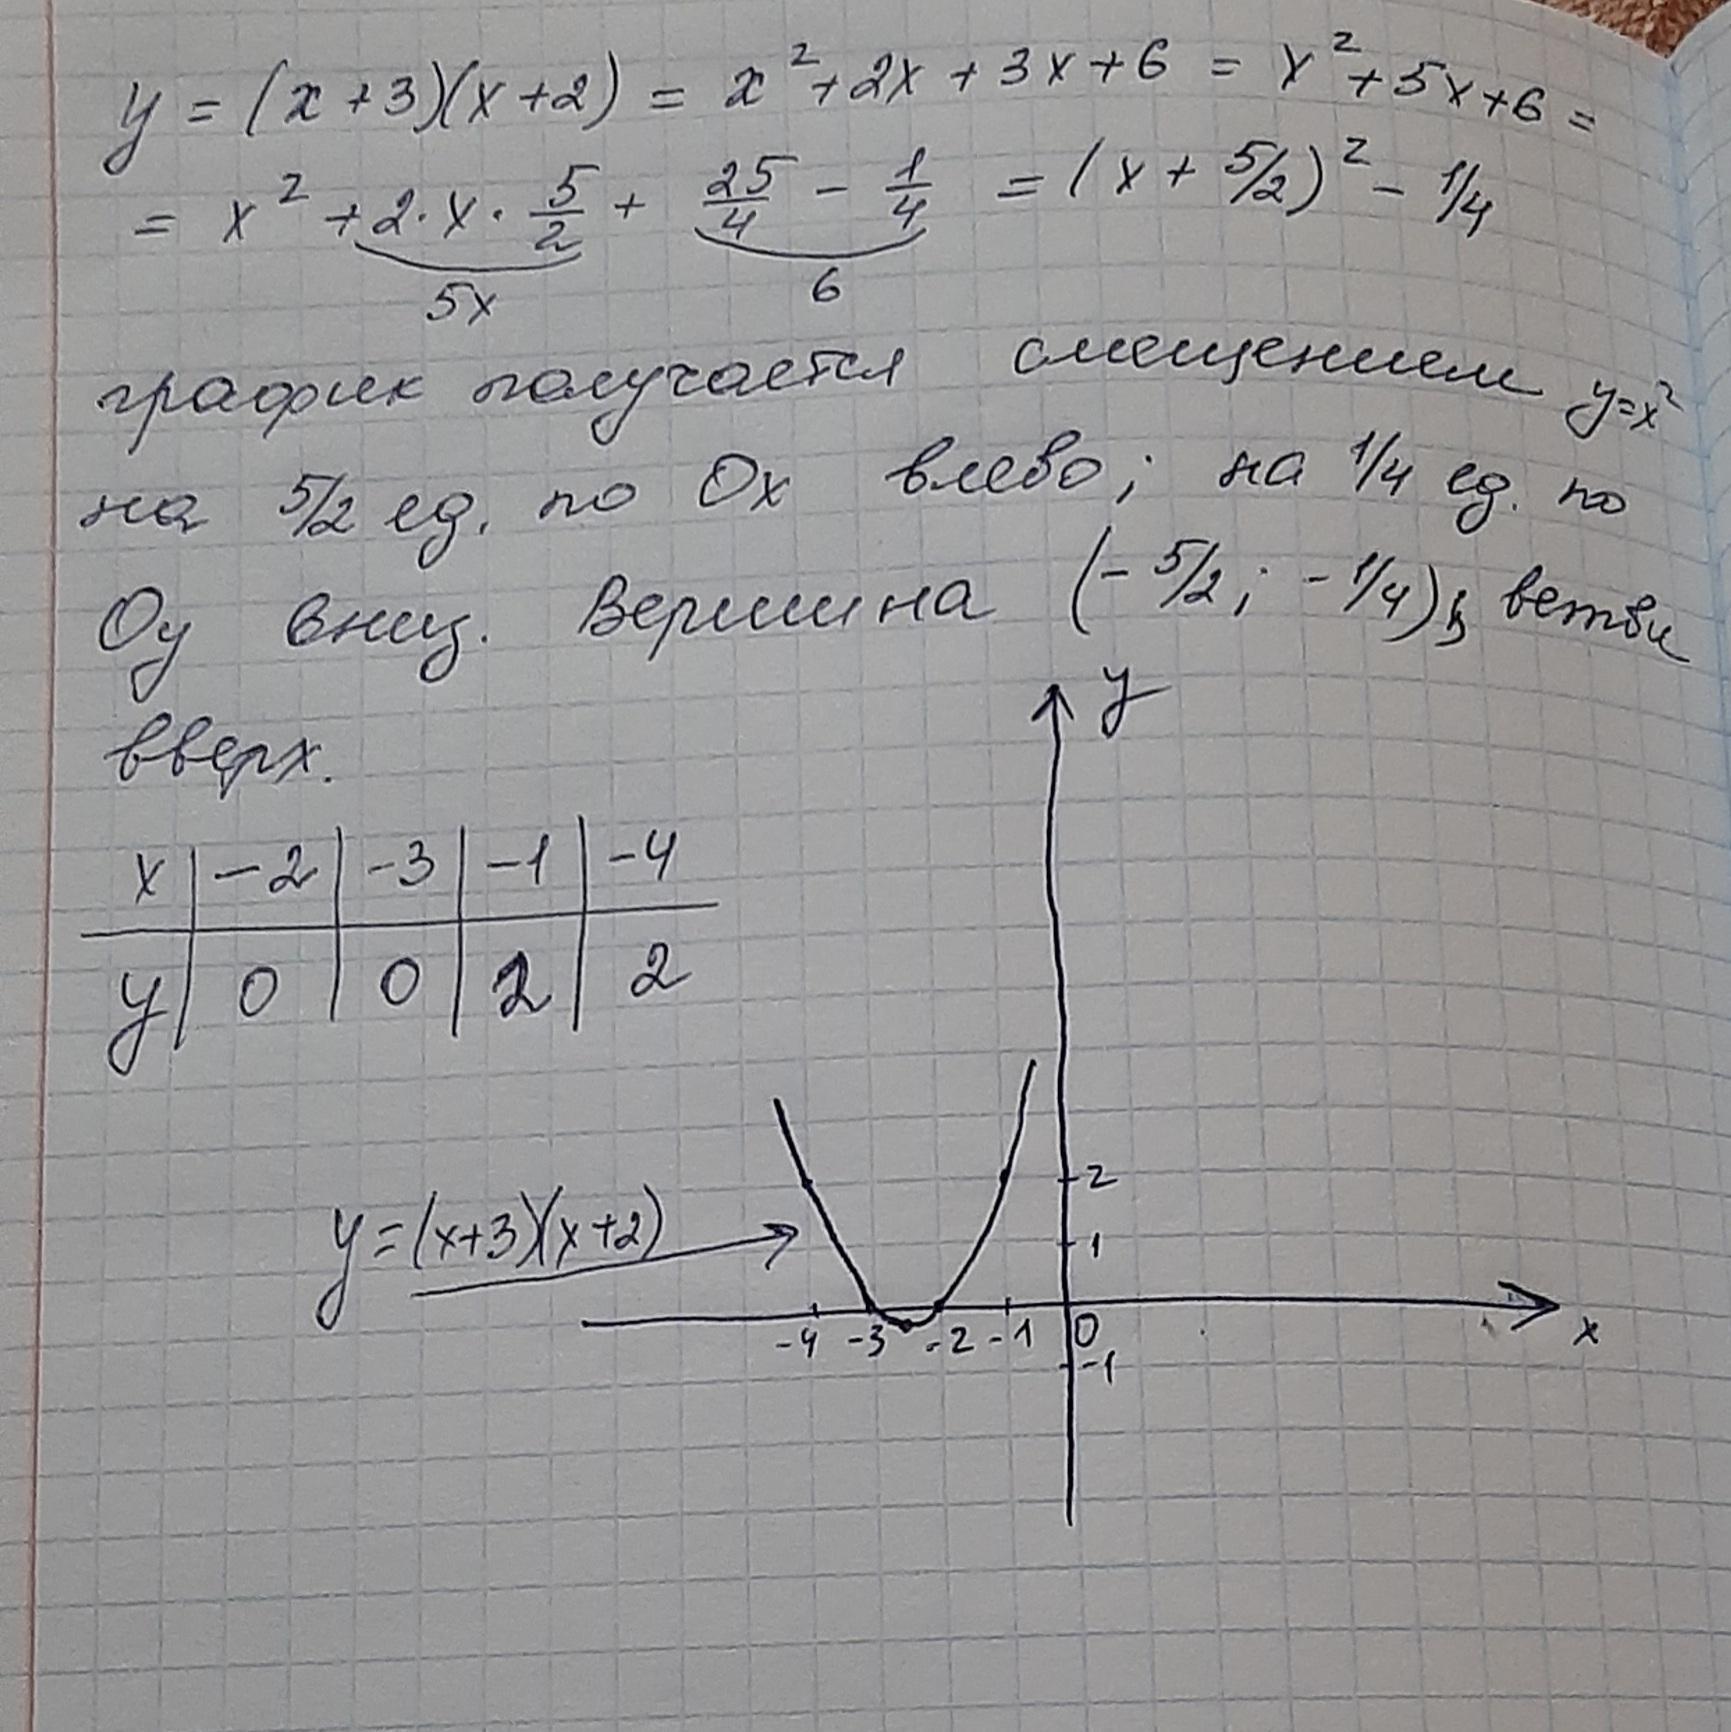 y = (x+3)(x+2) = x² + 2x + 3x + 6 = x² + 5x + 6 =
= x² + 2·x·5/2 + 25/4 − 1/4 = (x + 5/2)² − 1/4
5x 6
график получается смещением y=x²
на 5/2 ед. по Ox влево; на 1/4 ед. по
Oy вниз. Вершина (−5/2; −1/4), ветви
вверх.
y
x | −2 | −3 | −1 | −4
y | 0 | 0 | 2 | 2
2
y=(x+3)(x+2)
1
-4 -3 -2 -1 0 x
-1